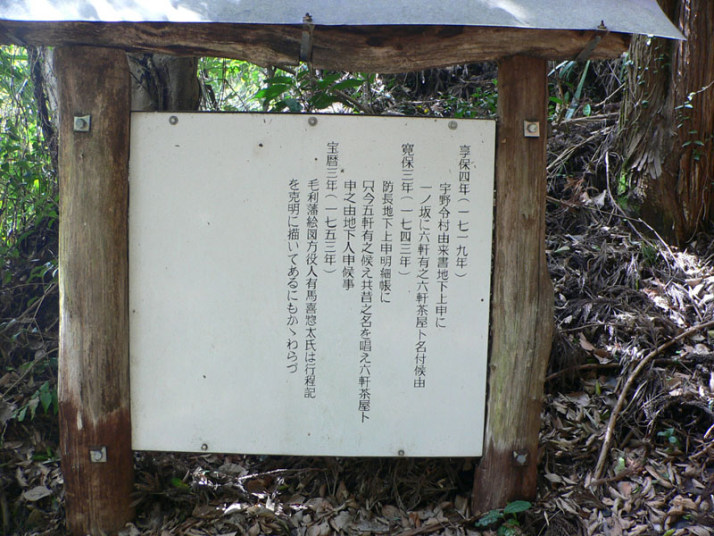 享保四年(一七一九年)
宇野令村由来書地下上申に
一ノ坂に六軒有之六軒茶屋ト名付候由
寛保三年(一七四三年)
防長地下上申明細帳に
只今五軒有之候え共昔之名を唱え六軒茶屋ト
申之由地下人申候事
宝暦三年(一七五三年)
毛利藩絵図方役人有馬喜惣太氏は行程記
を克明に描いてあるにもかゝわらづ